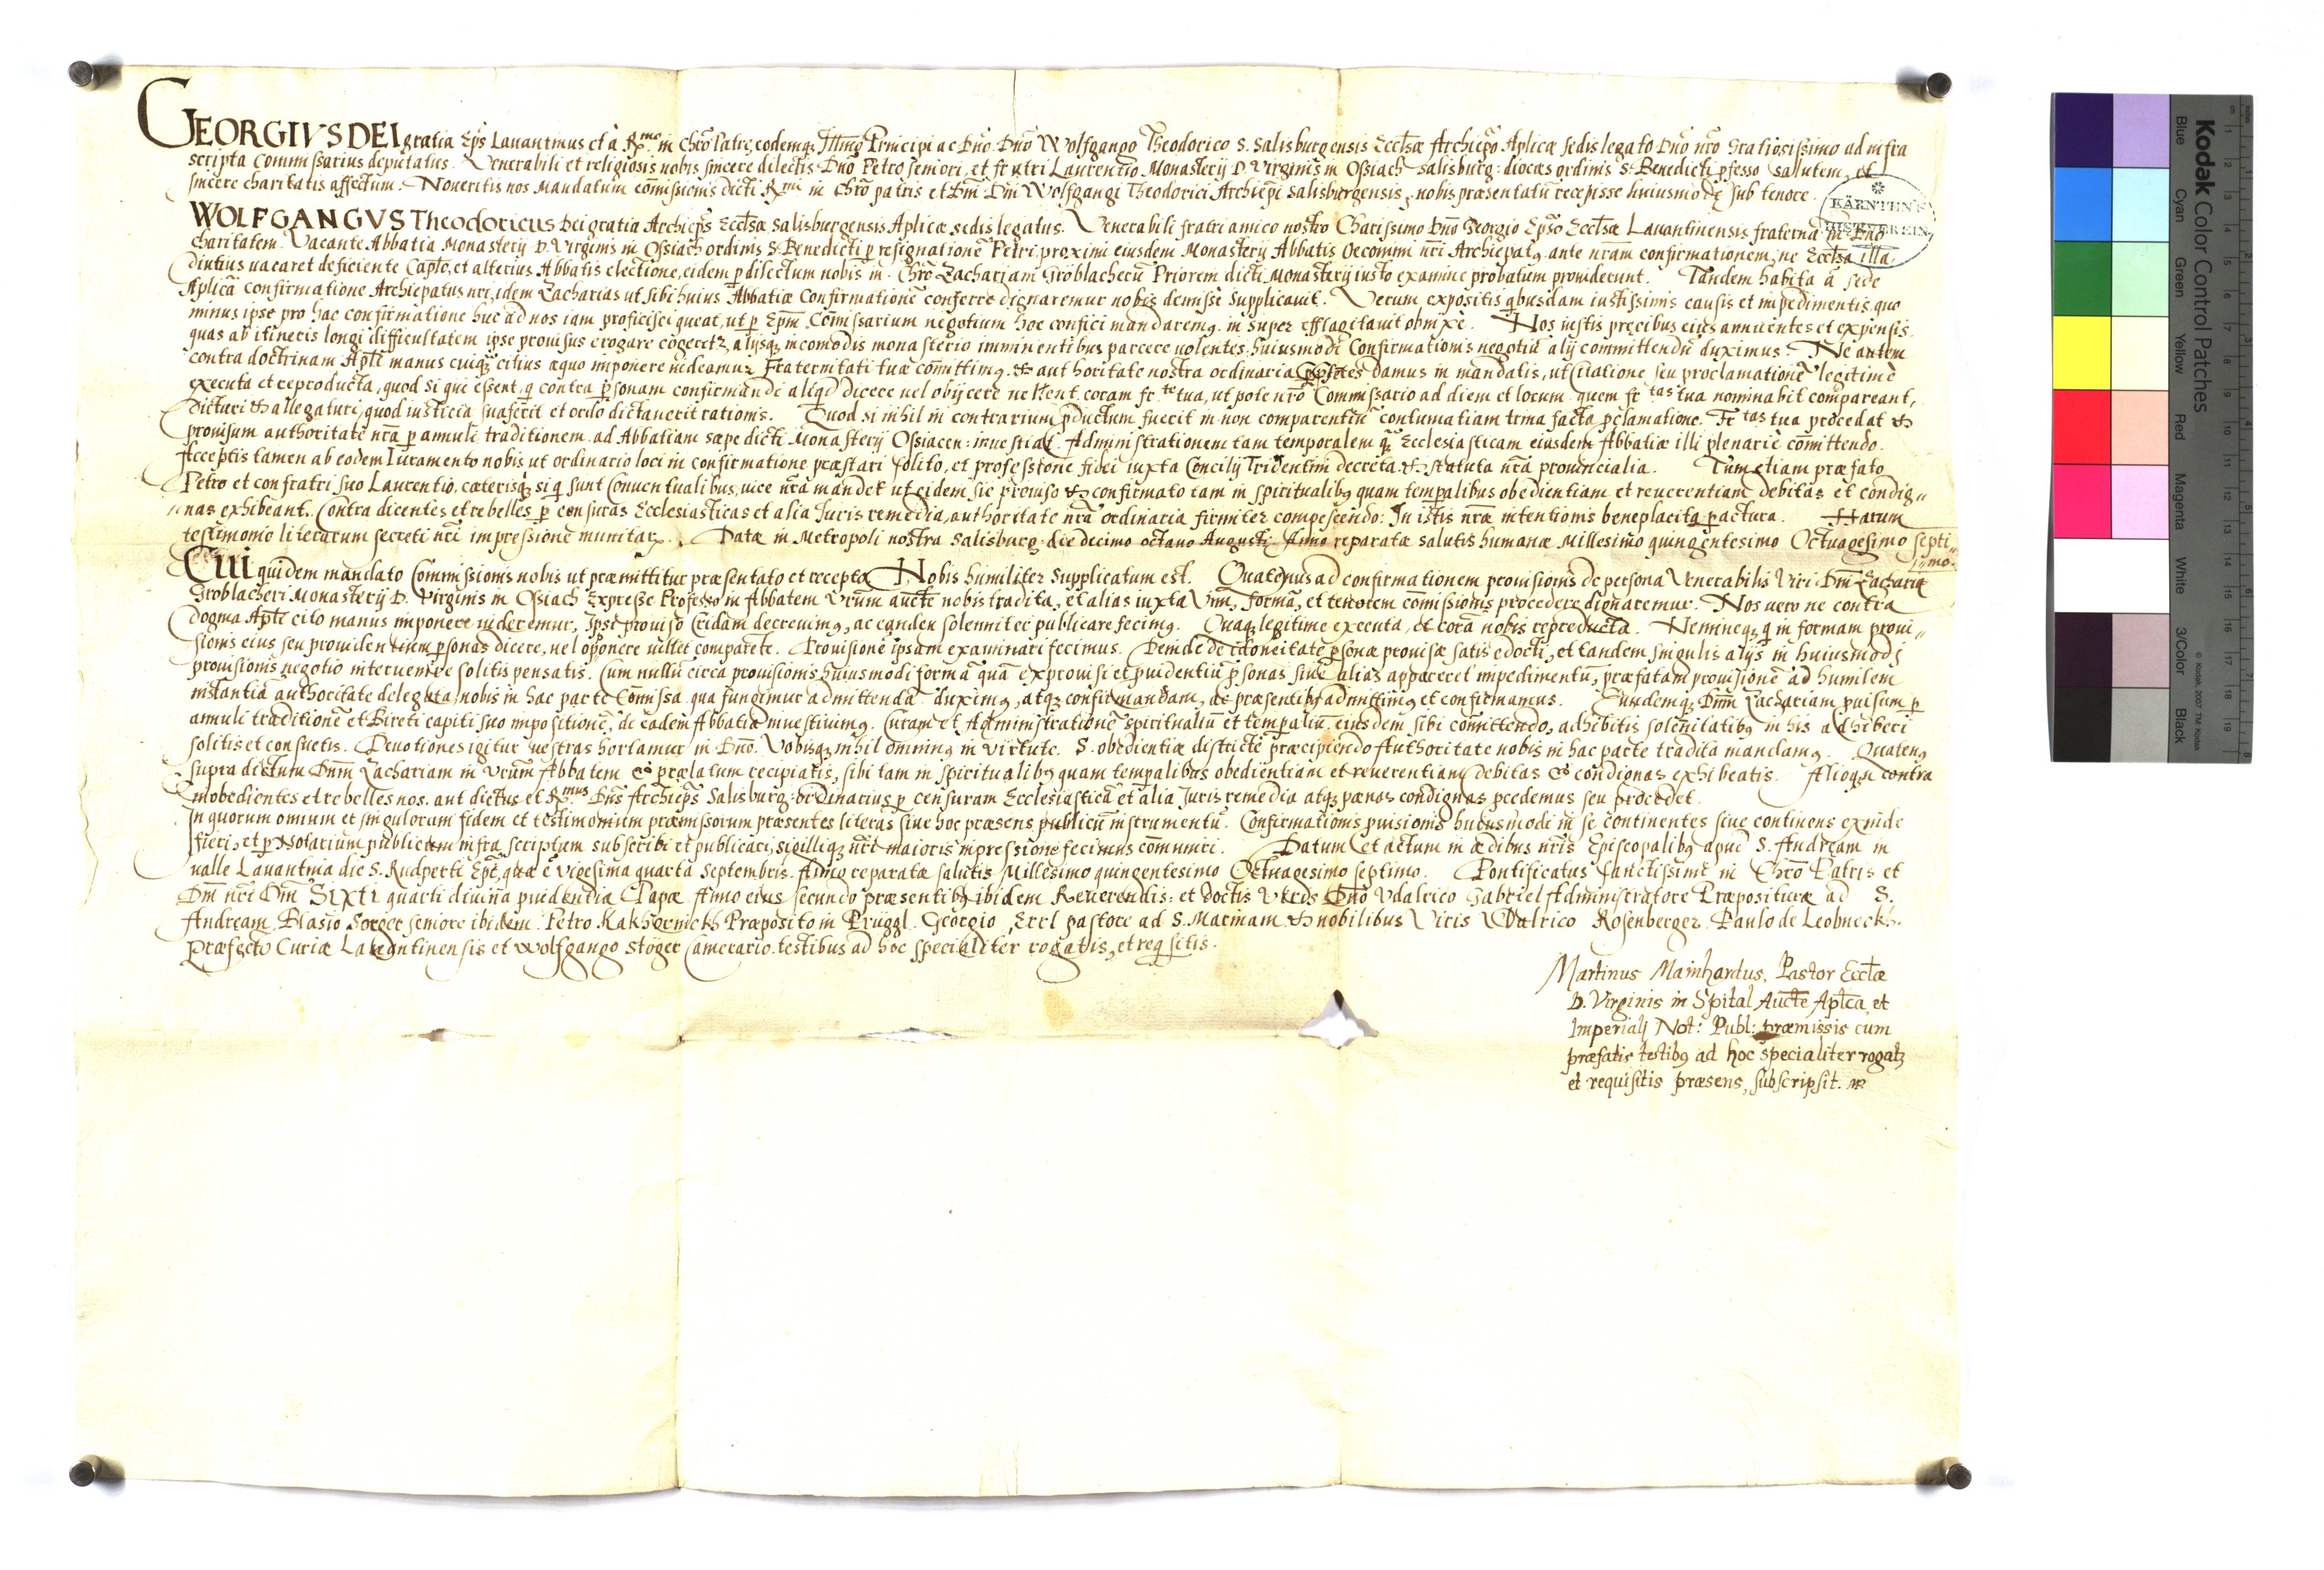 GEORGIVS DEI gratia Ep̃s Lauantinus et à R.mo in Chrõ Patre, eodemq; Illmo Principi ac Dño Dño Wolfgango Theodorico S. Salisburgensis Eccl̃æ Archiep̃o Aplicæ sedis legato Dño nrõ Gratiosissimo ad infra
scripta Commissarius deputatus. Venerabili et religiosis nobis sincere dilectis Dño Petro seniori, et fratri Laurentio Monasterij D. Virginis in Ossiach Salisburg: diocæs ordinis S. Benedicti p̱fesso salutem, et
sincere charitatis affectum. Noueritis nos Mandatum com̃issionis dicti R.mi in Chrõ patris et Dñi Dñi Wolfgangi Theodorici Archiep̃i Salisburgensis, nobis præsentatũ recepisse huiusmodi sub tenore.
KÄRNTEN'S
HIST. VEREIN
WOLFGANGVS Theodoricus Dei gratia Archiep̃s Eccl̃æ Salisburgensis Aplicæ sedis legatus. Venerabili fratri amico nostro Charissimo Dño Georgio Ep̃o Eccl̃æ Lauantinensis fraternã in Dño
charitatem. Vacante Abbatia Monasterij D. Virginis in Ossiach ordinis S. Benedicti p̱ resignationẽ Petri, proximi eiusdem Monasterij Abbatis Oeconimi nr̃i Archiepatꝰ, ante nr̃am confirmationem, ne Eccl̃a illa
diutius uacaret deficiente Caplo, et alterius Abbatis electione, eidem p̱ dilectum nobis in Chrõ Zachariam Gröblacherũ Priorem dicti Monasterij iusto examine probatum prouiderunt. Tandem habita à sede
Aplica confirmatione Archiepatus nr̃i, idem Zacharias ut sibi huius Abbatiæ Confirmationẽ conferre dignaremur nobis demisse supplicauit. Verum expositis qbusdam iustissimis causis et impedimentis quo
minus ipse pro hac confirmatione huc ad nos iam proficisci queat, ut p̱ Ep̃m Com̃issarium negotium hoc confici mandaremꝰ in super efflagitauit obnixè. Nos iustis precibus eius annuentes et expensis
quas ab itineris longi difficultatem ipse prouisus erogare cogeretꝛ, alijsq; incomodis monasterio imminentibus parcere uolentes, huiusmodi Confirmationis negotiũ alij committendũ duximus. Ne autem
contra doctrinam Apli manus cuiq; citius æquo imponere uideamur Fraternitati tuæ com̃ittimꝰ & authoritate nostra ordinaria damus in mandatis, ut citatione seu proclamationẽ legitimè
executa et reproducta, quod si qui essent, q̃ contra p̱sonam confirmandi aliqd dicere uel obijcere uellent, coram fr.te tua, ut pote nrõ Commissario ad diem et locum quem fr.tas tua nominabit compareant,
dicturi & allegaturi, quod iusticia suaserit et ordo dictauerit rationis. Quod si nihil in contrarium p̱ductum fuerit in non comparentiũ contumatiam trina facta p̱clamatione. Fr.tas tua procedat &
prouisum authoritate nrã p̱ annuli traditionem ad Abbatiam sæpe dicti Monasterij Ossiacen: inuestiat. Administrationem tam temporalem q̃ Ecclesiasticam eiusdem Abbatiæ illi plenariè com̃ittendo.
Acceptis tamen ab eodem Iuramento nobis ut ordinario loci in confirmatione præstari solito, et professione fidei iuxta Concilij Tridentini decreta & statuta nr̃a prouincialia. Tum etiam præfato
Petro et confratri suo Laurentio, cæterisq; si q̃ sunt Conuentualibus, uice nr̃a mandet ut eidem sic prouiso & confirmato tam in spiritualibꝰ quam temp̱alibus obedientiam et reuerentiam debitas et condig„
„nas exhibeant. Contra dicentes et rebelles p̱ censuras Ecclesiasticas et alia Iuris remedia, authoritate nr̃a ordinaria firmiter compescendo: In istis nr̃æ intentionis beneplacita p̱actura. Harum
testimonio literarum secreti nr̃i impressione munitaꝝ. Datæ in Metropoli nostra Salisburg: die decimo octauo Augusti Anno reparatæ salutis humanæ Millesimo quingentesimo Octuagesimo septi„
„mo.
Cui quidem mandato Commissionis nobis ut præmittitur præsentato et recepto Nobis humiliter supplicatum est. Quatenus ad confirmationem prouisionis de persona Venerabilis Viri Dñi Zachariæ
Gröblacheri Monasterij D. Virginis in Ossiach Expresse Professo in Abbatem Vr̃um auct̃e nobis tradita, et alias iuxta Vim, formã, et tenorem com̃issionis procedere dignaremur. Nos uero ne contra
dogma Apli cito manus imponere uideremur, ipse prouiso Cridam decreuimꝰ, ac eandem solenniter publicare fecimꝰ. Quaq; legitime executa, et corã nobis reproducta. Nemineq; q̃ in formam proui„
sionis eius seu prouidentium p̱sonas dicere, uel oponere uellet comparere. Prouisionẽ ipsam examinari fecimus. Deinde de idoneitate p̱sonæ prouisæ satis edocti, et tandem singulis alijs in huiusmodj
prouisionis negotio interuenire solitis pensatis. Cum nullũ circa prouisionis huiusmodi formã quã ex prouisi et p̱uidentiũ p̱sonas siue alias appareret impedimentũ, præfatam prouisionẽ ad humilem
instantiã authoritate delegata, nobis in hac parte Com̃issa qua fungimur admittendã duximꝰ, atq; confirmandam, ac præsentibꝰ admittimꝰ et confirmamus. Eundemq; Dñm Zachariam p̱uisum p̱
annuli traditionẽ et Bireti capiti suo impositionẽ, de eadem Abbatia inuestiuimꝰ. Curam et Administrationẽ spiritualiũ et temp̱aliũ eiusdem sibi com̃ittendo, adhibitis solenitatibꝰ in his adhiberi
solitis et consuetis. Deuotiones igitur uestras hortamur in Dño. Vobisq; nihil ominus in virtute S. obedientiæ districtè præcipiendo Authoritate nobis in hac parte tradita mandamꝰ. Quatenꝰ
supra dictum Dñm Zachariam in Vr̃um Abbatem & prælatum recipiatis, sibi tam in spiritualibꝰ quam temp̱alibus obedientiam et reuerentiam debitas & condignas exhibeatis. Alioqn contra
inobedientes et rebelles nos. aut dictus et R.mus Dñs Archiep̃s Salisburg: ordinarius p̱ censuram Ecclesiasticã et alia Iuris remedia atq; pænas condignas p̱cedemus seu procedet.
In quorum omnium et singulorum fidem et testimonium præmissorum præsentes literas siue hoc præsens publicũ instrumentũ. Confirmationis p̱uisionis huiusmodi in se continentes siue continens exinde
fieri, et p̱ Notarium publicum infra scriptum subscribi et publicari, sigilliq; nr̃i maioris impressione fecimus communiri. Datum et actum in ædibus nr̃is Episcopalibꝰ apud S. Andream in
ualle Lauantina die S. Rudperti Ep̃i, quæ ẽ uigesima quarta Septembris. Anno reparatæ salutis Millesimo quingentesimo Octuagesimo septimo. Pontificatus sanctissimi in Chrõ Patris et
Dñi nr̃i Dñi Sixti quarti diuina p̱uidentia Papæ Anno eius secundo præsentibꝰ ibidem Reuerendis: et doctis Viris Dño Vdalrico Gabriel Administratore Præposituræ ad S.
Andream, Blasio Sorger seniore ibidem. Petro Kakhornickh Præposito in Prüggl. Georgio Errl pastore ad S. Marinam & nobilibus Viris Vdalrico Rosenberger. Paulo de Leobneckh.
Præfecto Curiæ Lauantinensis et Wolfgango Stöger Camerario. testibus ad hoc specialiter rogatis, et reqsitis.
Martinus Mainhardus, Pastor Eccl̃æ
D. Virginis in Spital Auct̃e Apl̃ca, et
Imperialj Not: Publ: præmissis cum
præfatis testibꝰ ad hoc specialiter rogatꝫ
et requisitis præsens, subscripsit.
Kodak Color Control Patches
© Kodak, 2007 TM: Kodak
Blue
Cyan
Green
Yellow
Red
Magenta
White
3/Color
Black